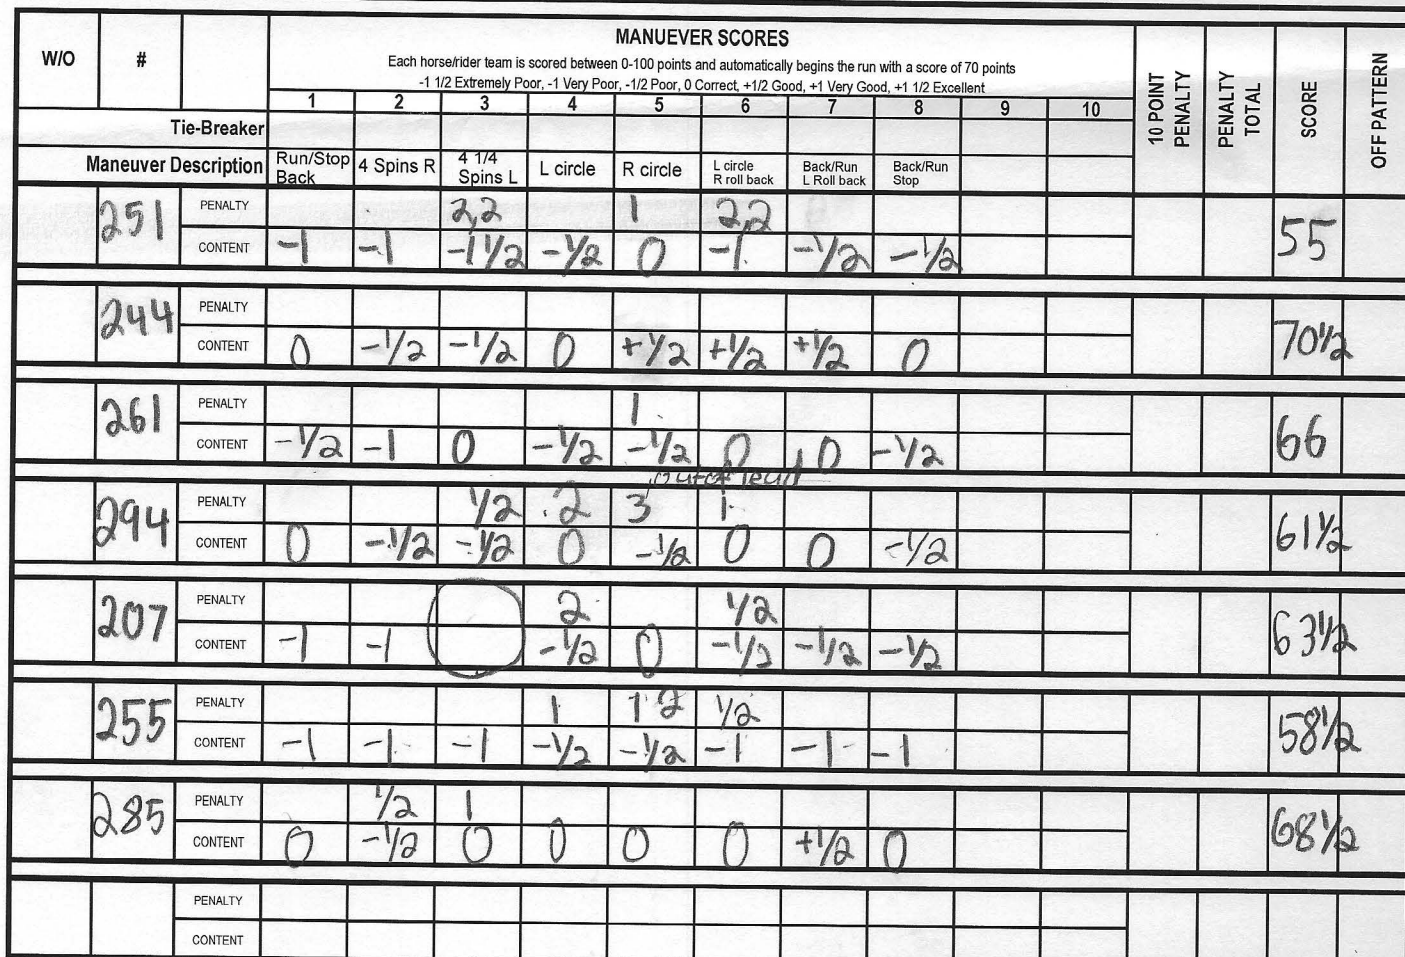 MANUEVER SCORES
W/O # Each horse/rider team is scored between 0-100 points and automatically begins the run with a score of 70 points
-1 1/2 Extremely Poor, -1 Very Poor, -1/2 Poor, 0 Correct, +1/2 Good, +1 Very Good, +1 1/2 Excellent
1 2 3 4 5 6 7 8 9 10 10 POINT PENALTY PENALTY TOTAL SCORE OFF PATTERN
Tie-Breaker
Maneuver Description Run/Stop Back 4 Spins R 4 1/4 Spins L L circle R circle L circle R roll back Back/Run L Roll back Back/Run Stop
251 PENALTY 2,2 1 2,2 55
CONTENT -1 -1 -1 1/2 -1/2 0 -1 -1/2 -1/2
244 PENALTY 70 1/2
CONTENT 0 -1/2 -1/2 0 +1/2 +1/2 +1/2 0
261 PENALTY 1 66
CONTENT -1/2 -1 0 -1/2 -1/2 0 0 -1/2
out of lead
294 PENALTY 1/2 2 3 1 61 1/2
CONTENT 0 -1/2 -1/2 0 -1/2 0 0 -1/2
207 PENALTY 2 1/2 63 1/2
CONTENT -1 -1 -1/2 0 -1/2 -1/2 -1/2
255 PENALTY 1 1 2 1/2 58 1/2
CONTENT -1 -1 -1 -1/2 -1/2 -1 -1 -1
285 PENALTY 1/2 1 68 1/2
CONTENT 0 -1/2 0 0 0 0 +1/2 0
PENALTY
CONTENT